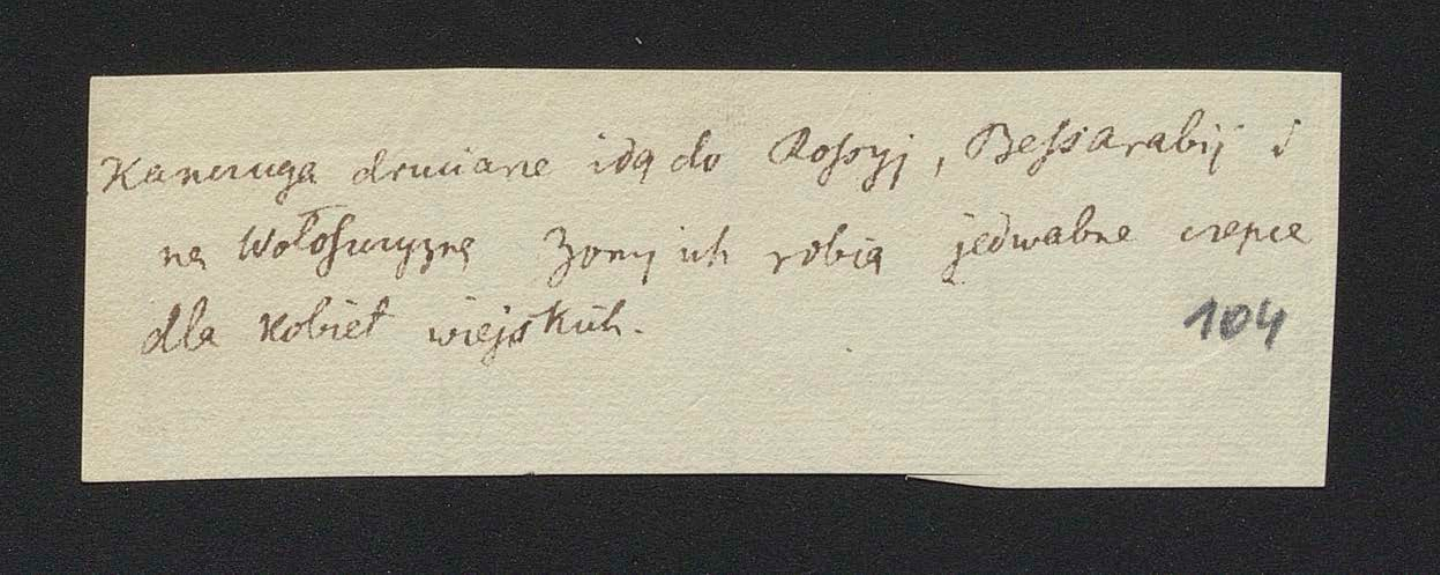 Kanczuga druciane idą do Rossyj, Bessarabij i
na Wołoszczyznę Zony ich robią jedwabne czepce
dla kobiet wiejskich.
104